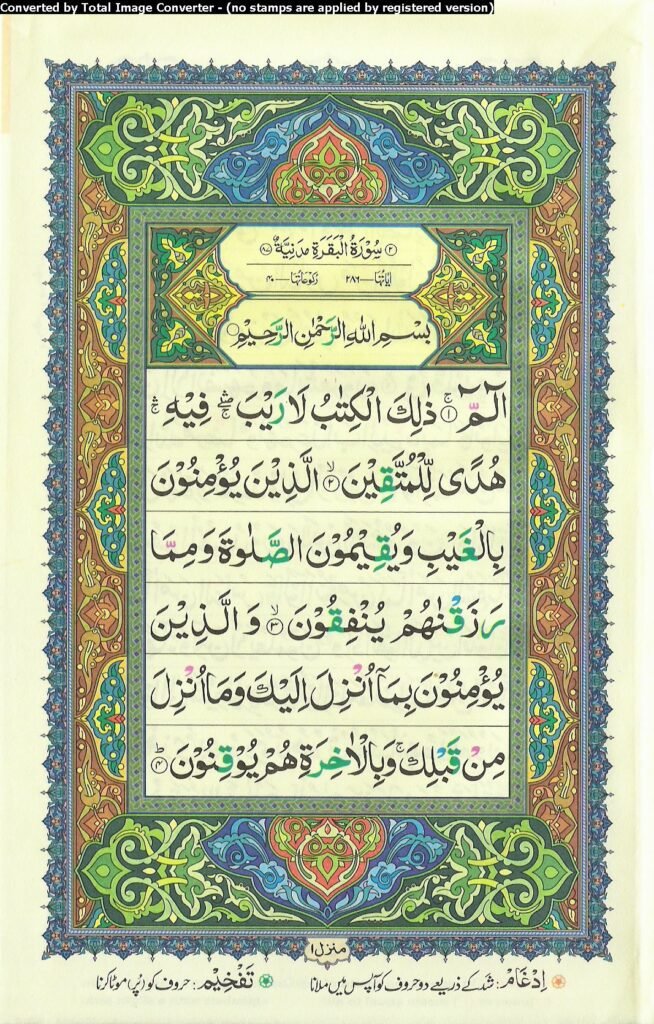 Converted by Total Image Converter - (no stamps are applied by registered version)
﴿٢﴾ سُوْرَةُ الْبَقَرَةِ مَدَنِيَّةٌ ﴿٨٧﴾
اٰيَاتُهَا—٢٨٦ رُكُوْعَاتُهَا—٤٠
بِسْمِ اللّٰهِ الرَّحْمٰنِ الرَّحِيْمِ
الٓمّٓ ۚ﴿١﴾ ذٰلِكَ الْكِتٰبُ لَا رَيْبَ ۖۚ فِيْهِ ۚۛ
هُدًى لِّلْمُتَّقِيْنَ ۙ﴿٢﴾ الَّذِيْنَ يُؤْمِنُوْنَ
بِالْغَيْبِ وَيُقِيْمُوْنَ الصَّلٰوةَ وَمِمَّا
رَزَقْنٰهُمْ يُنْفِقُوْنَ ۙ﴿٣﴾ وَالَّذِيْنَ
يُؤْمِنُوْنَ بِمَاۤ اُنْزِلَ اِلَيْكَ وَمَاۤ اُنْزِلَ
مِنْ قَبْلِكَ ۚ وَبِالْاٰخِرَةِ هُمْ يُوْقِنُوْنَ ؕ﴿٤﴾
منزل ١
اِدْغَام: شد کے ذریعے دو حروف کو آپس میں ملانا تَفْخِيْم: حروف کو (پُر) موٹا کرنا